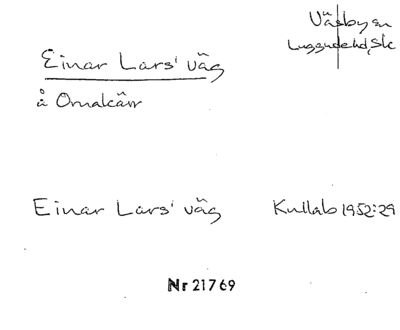 Väsby sn
Luggude hd, Sk
Einar Lars' väg
å Ornakärr
Einar Lars' väg Kullab 1952:29
Nr 21769